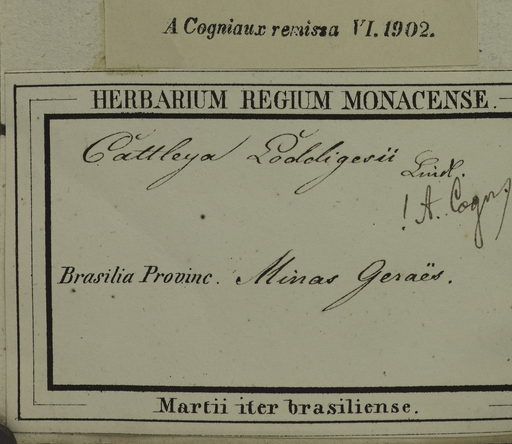 A Cogniaux remissa VI. 1902.
HERBARIUM REGIUM MONACENSE.
Cattleya Loddigesii
Lindl.
! A. Cogn.
Brasilia Provinc. Minas Geraës.
Martii iter brasiliense.